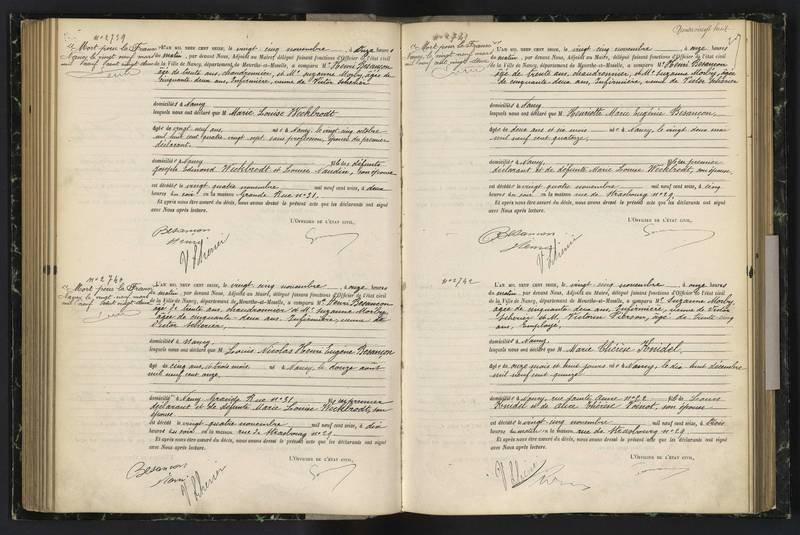 n° 2739
"Mort pour la France"
Nancy le vingt neuf mars
mil neuf cent vingt deux
L'AN MIL NEUF CENT SEIZE, le vingt cinq novembre, à onze heures
du matin, par devant Nous, Adjoint au Maire, délégué faisant fonctions d'Officier de l'état civil
de la Ville de Nancy, département de Meurthe-et-Moselle, a comparu M. Henri Besançon
âgé de trente ans, chaudronnier, et Me Suzanne Morby, âgée de
cinquante deux ans, Infirmière, veuve de Victor Scherier
domiciliés à Nancy
lesquels nous ont déclaré que M Marie Louise Weckbrodt
âgée de vingt neuf ans, née à Nancy, le vingt cinq octobre
mil huit cent quatre vingt sept, sans profession, épouse du premier
déclarant.
domicilié à Nancy, fille de défunts
Joseph Edmond Weckbrodt et Louise Naudin, son épouse
est décédée le vingt quatre novembre mil neuf cent seize, à deux
heures du soir en la maison Grande Rue n° 31.
Et après nous être assuré du décès, nous avons dressé le présent acte que les déclarants ont signé
avec Nous après lecture.
L'OFFICIER DE L'ÉTAT CIVIL,
Besançon
Henri
n° 2740
"Mort pour la France"
Nancy le vingt neuf mars
mil neuf cent vingt deux
L'AN MIL NEUF CENT SEIZE, le vingt cinq novembre, à onze heures
du matin, par devant Nous, Adjoint au Maire, délégué faisant fonctions d'Officier de l'état civil
de la Ville de Nancy, département de Meurthe-et-Moselle, a comparu M. Henri Besançon
âgé de trente ans, chaudronnier et Me Suzanne Morby,
âgée de cinquante-deux ans, Infirmière, veuve de
Victor Scherier,
domiciliés à Nancy
lesquels nous ont déclaré que M Louis Nicolas Henri Eugène Besançon
âgé de cinq ans et trois mois né à Nancy, le douze août
mil neuf cent onze,
domicilié à Nancy Grande Rue n° 31, fils du premier
déclarant et de défunte Marie Louise Weckbrodt, son
épouse
est décédé le vingt quatre novembre mil neuf cent seize, à dix
heures du soir en la maison rue de Strasbourg n° 29
Et après nous être assuré du décès, nous avons dressé le présent acte que les déclarants ont signé
avec Nous après lecture.
L'OFFICIER DE L'ÉTAT CIVIL,
Besançon
Henri
Quatre vingt huit
n° 2741
"Mort pour la France"
Nancy, le vingt neuf mars
mil neuf cent vingt deux
L'AN MIL NEUF CENT SEIZE, le vingt cinq novembre, à onze heures
du matin, par devant Nous, Adjoint au Maire, délégué faisant fonctions d'Officier de l'état civil
de la Ville de Nancy, département de Meurthe-et-Moselle, a comparu M. Henri Besançon
âgé de trente ans, chaudronnier, et Me Suzanne Morby, âgée
de cinquante deux ans, Infirmière, veuve de Victor Scherier
domiciliés à Nancy
lesquels nous ont déclaré que M Henriette Marie Eugénie Besançon,
âgée de deux ans et six mois née à Nancy, le vingt deux mai
mil neuf cent quatorze,
domicilié à Nancy, fille du premier
déclarant et de défunte Marie Louise Weckbrodt, son épouse,
est décédée le vingt quatre novembre mil neuf cent seize, à cinq
heures du soir en la maison rue de Strasbourg n° 29,
Et après nous être assuré du décès, nous avons dressé le présent acte que les déclarants ont signé
avec Nous après lecture.
L'OFFICIER DE L'ÉTAT CIVIL,
Besançon
Henri
n° 2742
L'AN MIL NEUF CENT SEIZE, le vingt cinq novembre, à onze heures
du matin, par devant Nous, Adjoint au Maire, délégué faisant fonctions d'Officier de l'état civil
de la Ville de Nancy, département de Meurthe-et-Moselle, a comparu Me Suzanne Morby,
âgée de cinquante deux ans, Infirmière, veuve de Victor
Scherier et M. Victorin Vibron, âgé de trente cinq
ans, Employé,
domiciliés à Nancy,
lesquels nous ont déclaré que M Marie Thérèse Knidel,
âgée de onze mois et huit jours née à Nancy, le dix huit décembre
mil neuf cent quinze
domicilié à Nancy, rue Sainte Anne n° 22 fille de Louis
Knidel et de Alix Thérèse Voinot, son épouse
est décédée le vingt cinq novembre mil neuf cent seize, à trois
heures du matin en la maison rue de Strasbourg n° 29.
Et après nous être assuré du décès, nous avons dressé le présent acte que les déclarants ont signé
avec Nous après lecture.
L'OFFICIER DE L'ÉTAT CIVIL,